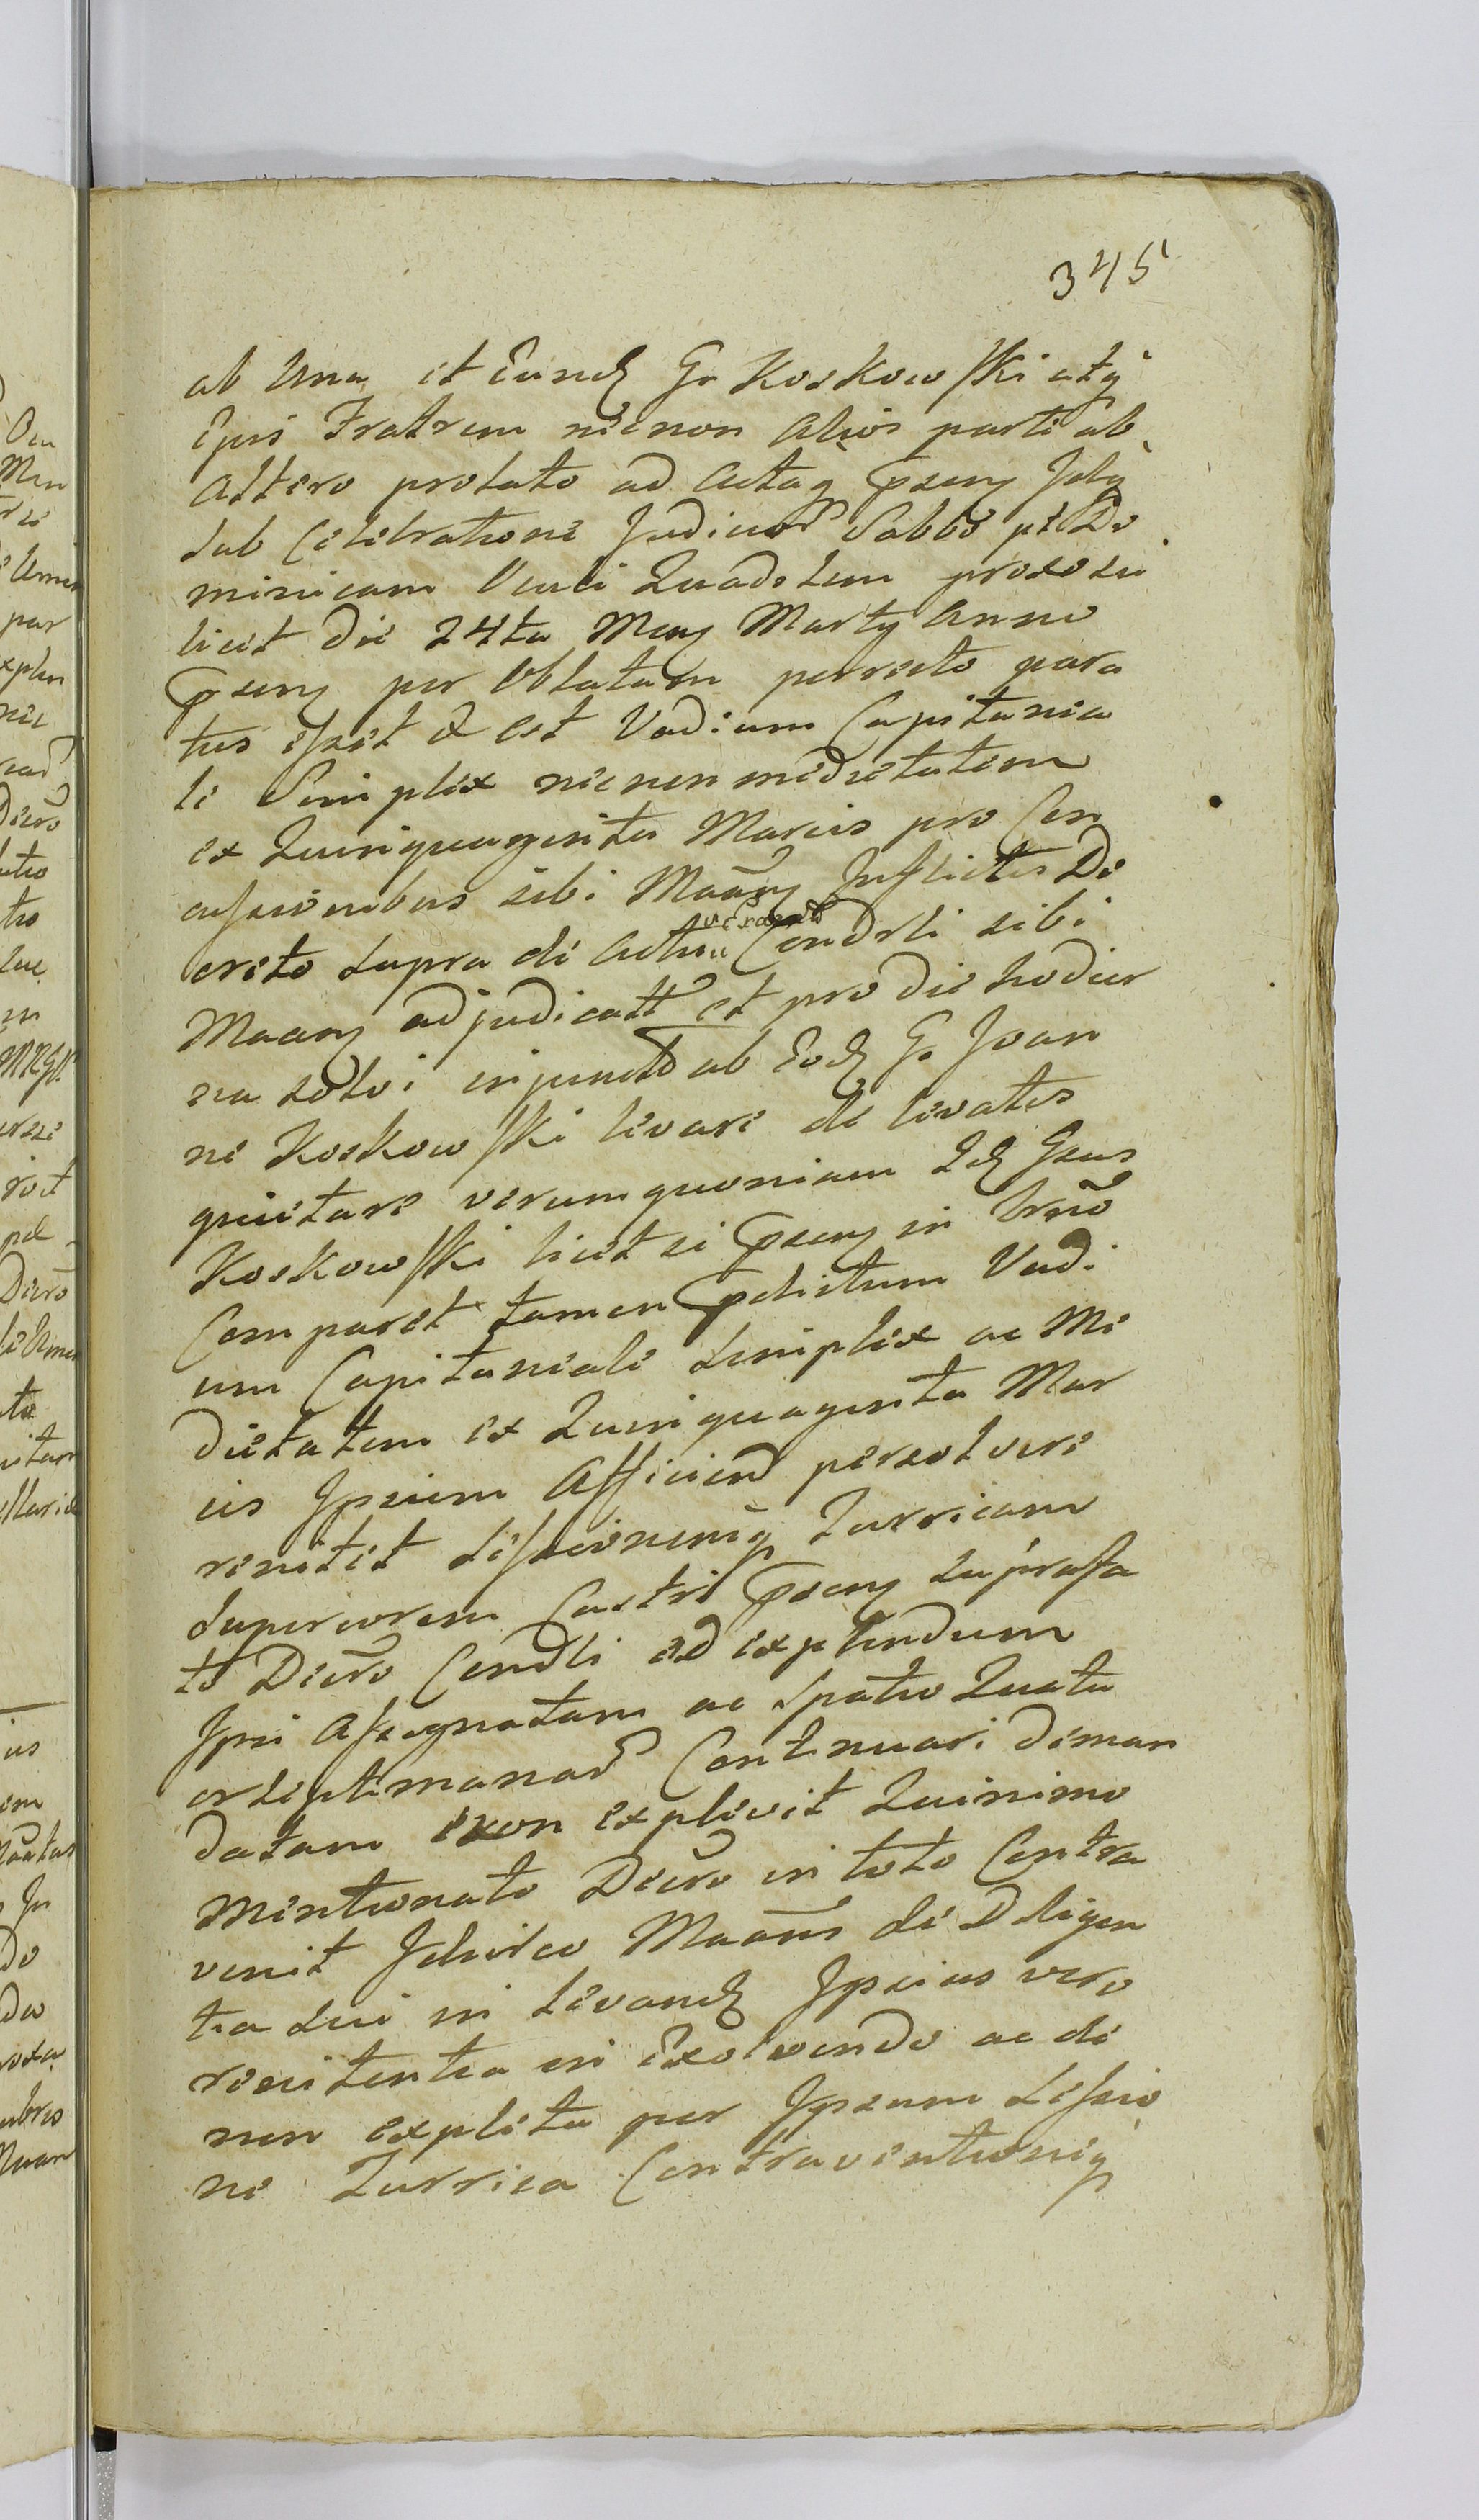 345
ab Una et Eund G. Koskowski atq
Ejus Fratrem nec non Alios parte ab
Altero prolato ad Actaq praesen Jdq
sub Celebratione Judicior Sabbo pt Do
minicam Oculi Quadolem proxo sci
licet die 24ta Mens Martij Anno
praesen per Oblatam porrecto para
tus esset & est Vadium Capitanea
le Simplex nec non medietatem
ex Quinquaginta Marcis pro Con
cussionibus sibi Maans Inflictis De
creto supra de Actu Condrli sibi
Maans adjudicatt et pro die hodier
na solvi injunctt ab Eod G. Joan
ne Koskowski levare de levatis
quietare verum quoniam Id Gsus
Koskowski licet ei praesen in Trno
Comparet tamen praedictum Vadi
um Capitaneale simplex ac Me
dietatem ex Quinquaginta Mar
cis Ipsum Afficien persolvere
renitet sessionemq Turricam
superiorem Castri praesen supra fa
to Decro Condli ad explendum
Ipsi Assignatam ac spatio Quatu
or septimanar Continuari deman
datam non explevit Quinimo
mentionato Decro in toto Contra
venit Jdcirco Maans de Diligen
tia sui in levand Ipsius vero
renitentia in Exolvendo ac de
non expleta per Ipsum sessio
ne Turrica Contraventioneq